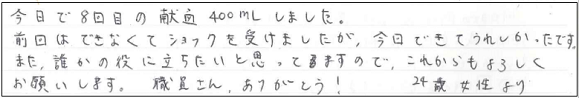 今日で8回目の献血400mLしました。
前回はできなくてショックを受けましたが、今日できてうれしかったです。
また、誰かの役に立ちたいと思ってますので、これからもよろしく
お願いします。 職員さん、ありがとう!  24歳 女性より